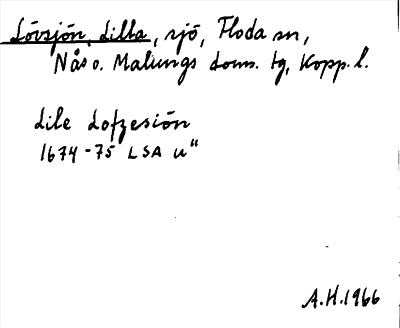 Lövsjön, Lilla, sjö, Floda sn,
Nås o. Malungs doms. tg, Kopp. l.
Lile Lofzesiön
1674-75 LSA u"
A.H. 1966